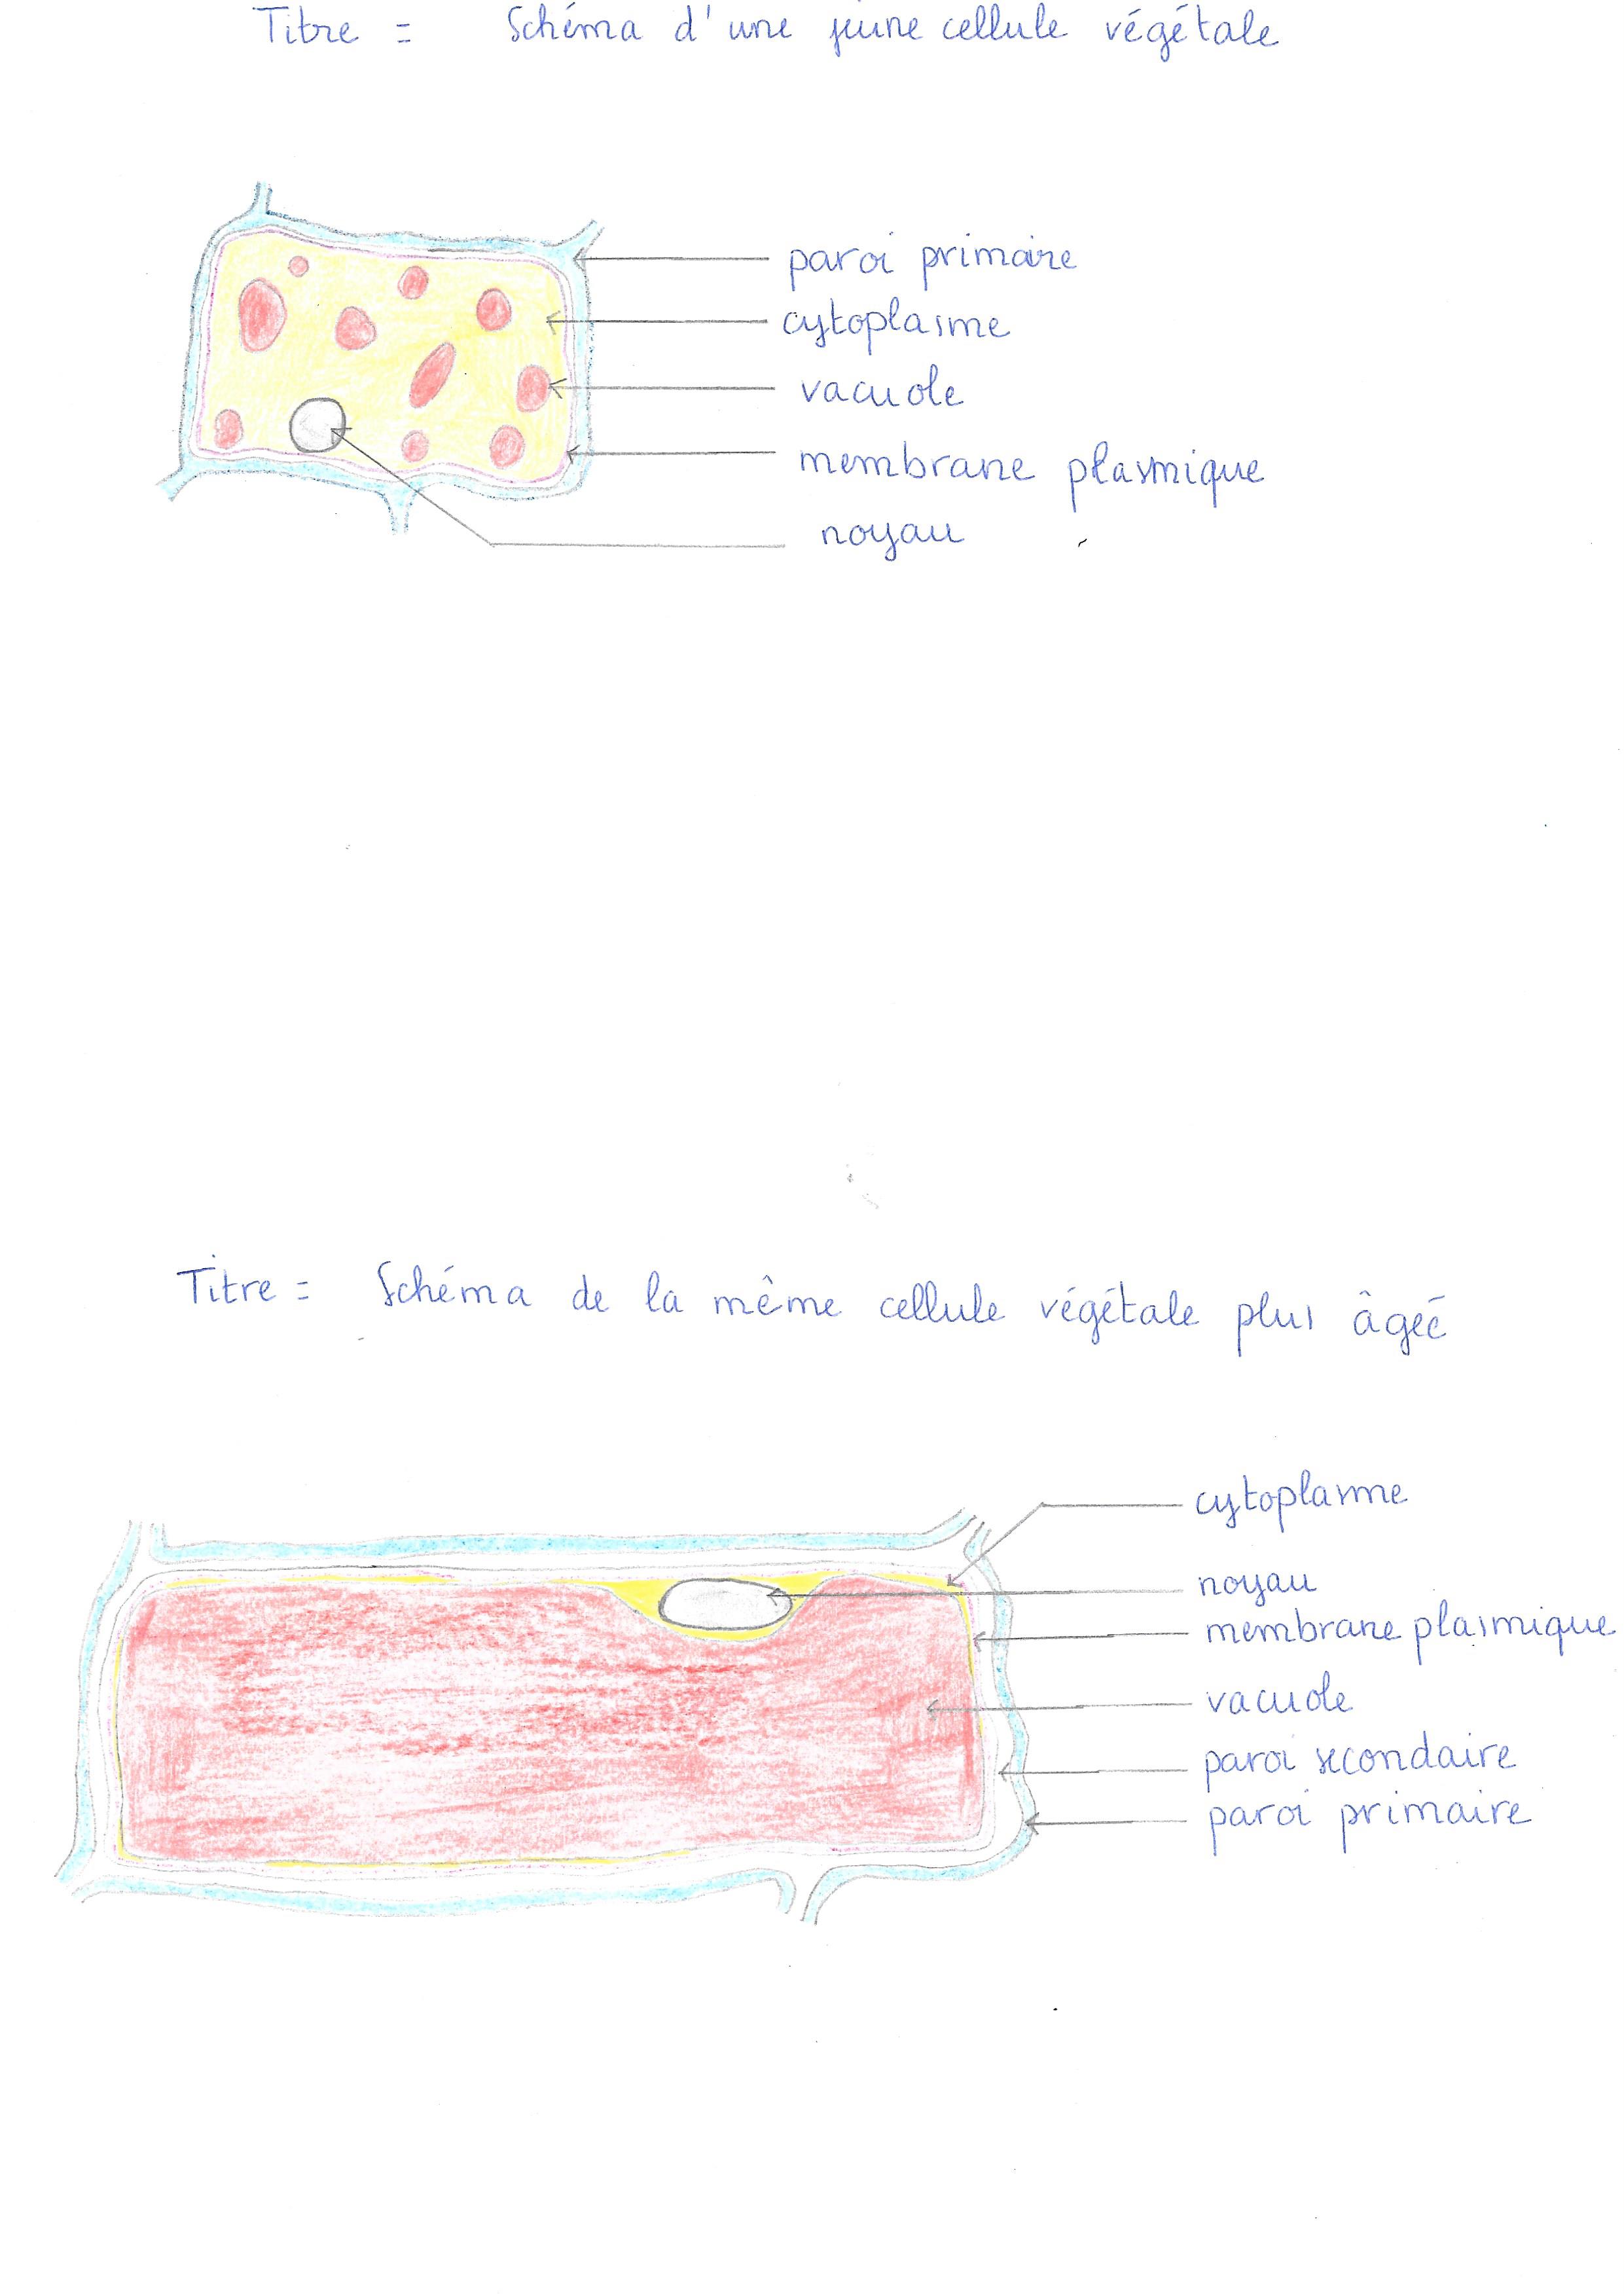 Titre = Schéma d'une jeune cellule végétale
paroi primaire
cytoplasme
vacuole
membrane plasmique
noyau
Titre = Schéma de la même cellule végétale plus âgée
cytoplasme
noyau
membrane plasmique
vacuole
paroi secondaire
paroi primaire